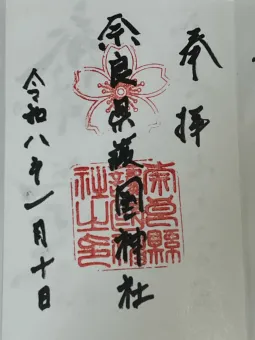 奉拝
奈良県護国神社
令和八年一月十日
奈良縣護國神社之印